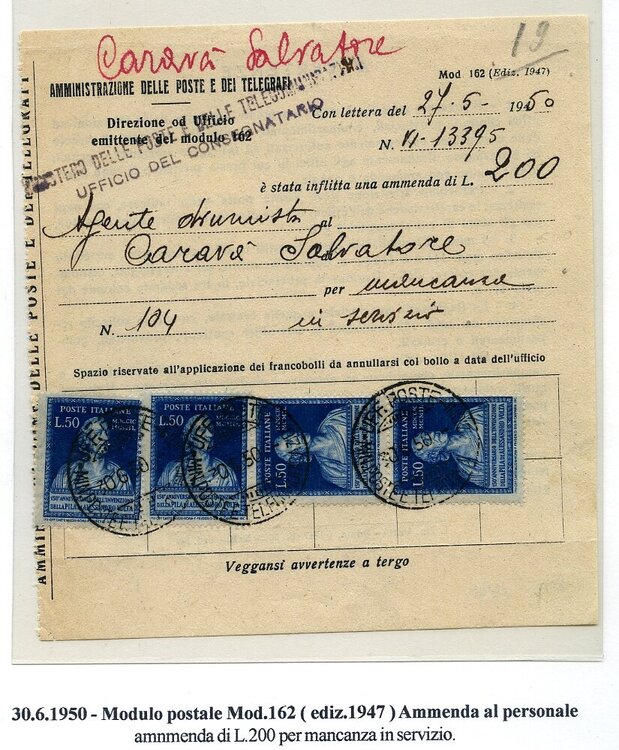 Caravà Salvatore
19
AMMINISTRAZIONE DELLE POSTE E DEI TELEGRAFI
Mod 162 (Ediz. 1947)
MINISTERO DELLE POSTE E DELLE TELECOMUNICAZIONI
UFFICIO DEL CONSEGNATARIO
Direzione od Ufficio
emittente del modulo 162
Con lettera del 27-5- 1950
N. VI-13395
è stata inflitta una ammenda di L. 200
Agente al
Caravà Salvatore
per mancanza
N. 104 in servizio
Spazio riservate all'applicazione dei francobolli da annullarsi col bollo a data dell'ufficio
POSTE ITALIANE
L.50
POSTE ITALIANE
L.50
POSTE ITALIANE
L.50
POSTE ITALIANE
L.50
MDCCIC
MCMIL
150° ANNIVERSARIO DELL'INVENZIONE
DELLA PILA DI ALESSANDRO VOLTA
Veggansi avvertenze a tergo
30.6.1950 - Modulo postale Mod.162 ( ediz.1947 ) Ammenda al personale
amnmenda di L.200 per mancanza in servizio.